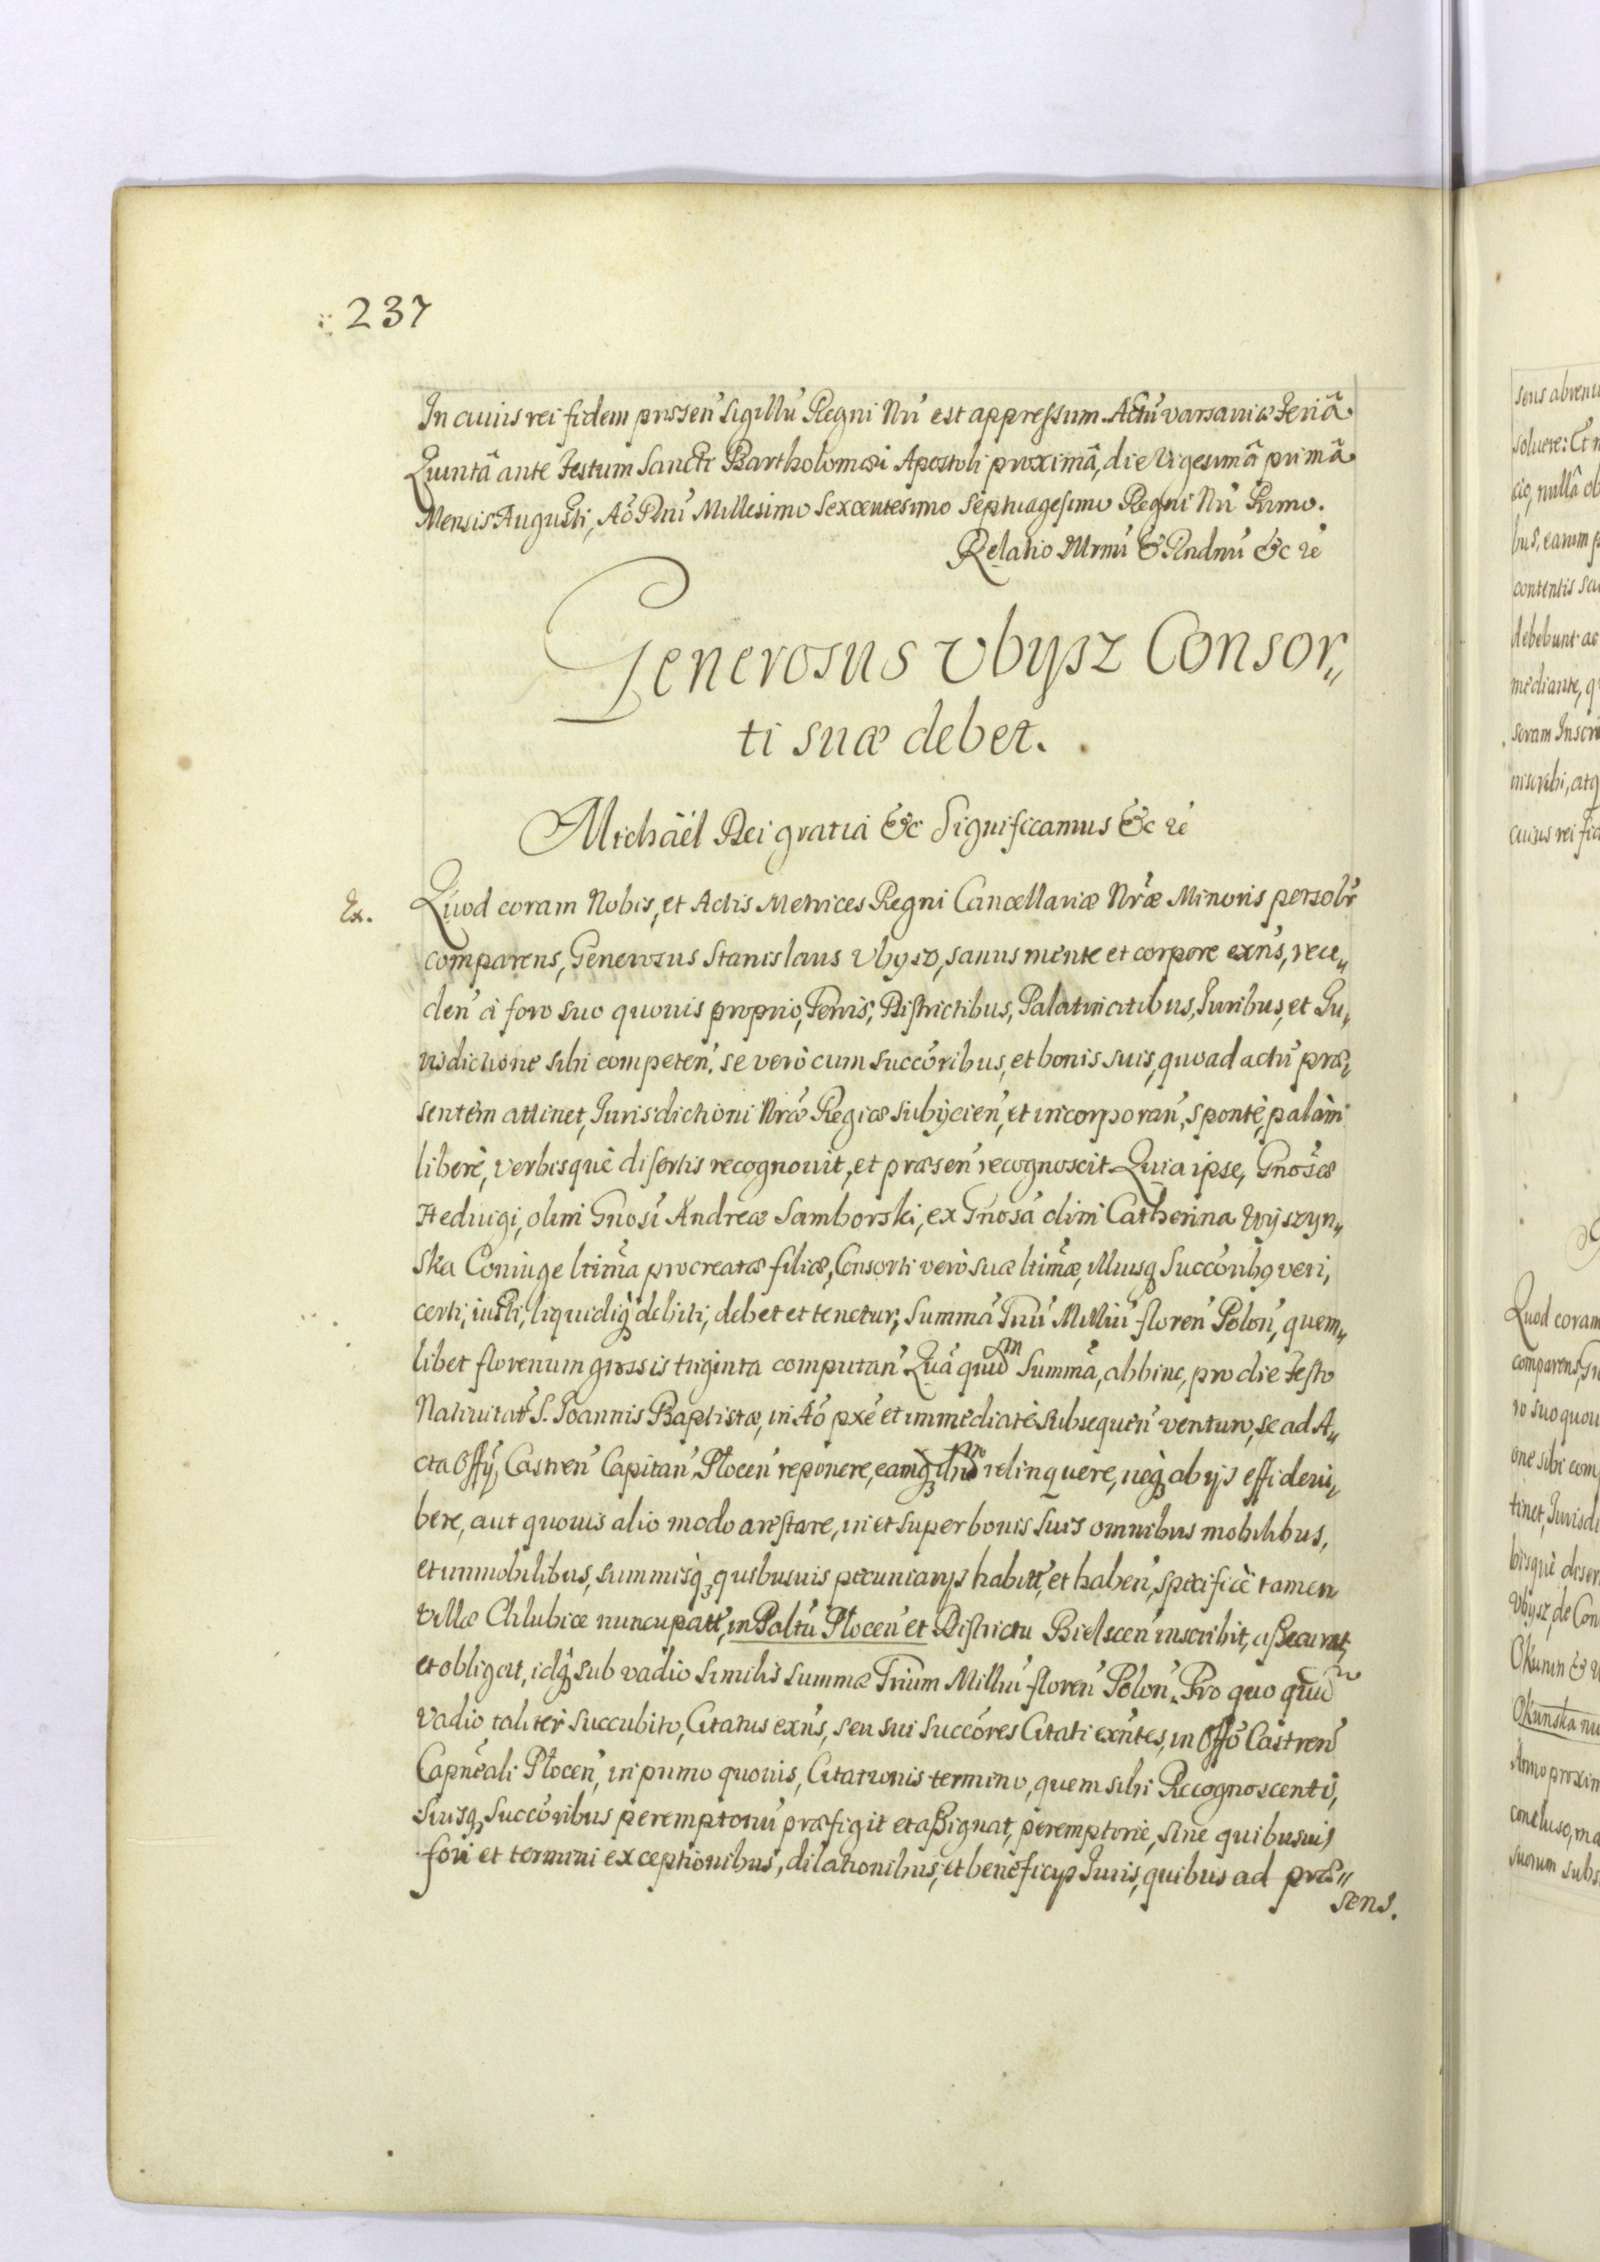 237
In cuius rei fidem præsen̄ Sigillū Regni Nrī est appressum. Actū varsaviæ Feriâ
Quintâ ante Festum Sancti Bartholomæi Apostoli proximâ, die Vigesimâ primâ
Mensis Augusti, Aō Dnī Millesimo Sexcentesimo Septuagesimo Regni Nrī Primo.
Relatio Illrmī & Rndmī &c 2e
Generosus Vbysz Consor„
ti suæ debet.
Michäel Dei gratiâ &c Significamus &c 2e
Ex. Quod coram Nobis, et Actis Metrices Regni Cancellariæ Nræ Minoris persolr̄
comparens, Generosus Stanislaus Vbysz, sanus mente et corpore exn̄s, rece„
den̄ à foro suo quouis proprio, Terris, Districtibus, Palatinatibus, Iuribus, et Iu„
risdictione sibi competen̄. se verò cum succōribus, et bonis suis, quoad actū præ„
sentem attinet, Iurisdictioni Nræ Regiæ subijcien̄, et incorporan̄, spontè, palàm
liberè, verbisquè disertis recognouit, et præsen̄ recognoscit. Quia ipse, Gnosæ
Heduigi, olim Gnosi Andreæ Samborski, ex Gnosa olim Catherina Wyszyn„
ska Coniuge ltīma procreatæ filiæ, Consorti verò suæ ltīmæ, illiusq̢ Succōribq̢ veri,
certi, iusti, liquidiq̢ debiti, debet et tenetur, Summā Triū Milliū floren̄ Polon̄, quem„
libet florenum grossis triginta computan̄ Quā quid̄m Summā, abhinc, pro die Festo
Natiuitat̄ S. Joannis Baptistæ, in Aō pxē et immediatè Subsequen̄ venturo, se ad A„
cta Offÿ, Castren̄ Capitan̄, Płocen̄ reponere, eamq̢ ibid̄m relinquere, neq̢ ab ijs effideri„
bere, aut quouis alio modo arestare, in et super bonis suis omnibus mobilibus,
et immobilibus, summisq̢, quibusuis pecuniarijs habitt̄, et haben̄, specificè tamen
Villæ Chlubicæ nuncupatt̄, in Paltū Płocen̄ et Districtu Bielscen̄ inscribit, assecurat,
et obligat, idq̢ sub vadio similis summæ Trium Milliū floren̄ Polon̄. Pro quo quid̄m
Vadio taliter succubito, Citatus exn̄s, seu sui Succōres Citati exn̄tes, in Offō Castren̄
Capn̄eali Płocen̄, in primo quouis, Citationis termino, quem sibi Recognoscenti,
Suisq̢ Succōribus peremptoriū præfigit et assignat, peremptoriè, sine quibusuis
fori et termini exceptionibus, dilationibus, et beneficijs Iuris, quibus ad præ„
sens.